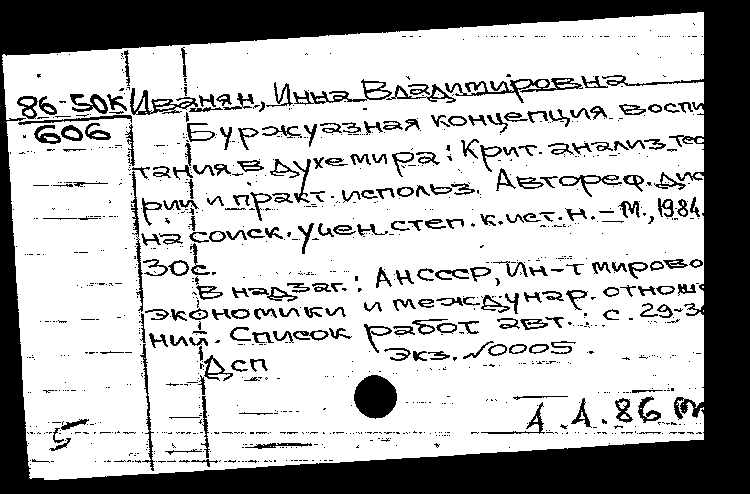 86-50К Иванян, Инна Владимировна
606 Буржуазная концепция воспи
тания в духе мира: Крит. анализ тео
рии и практ. использ. Автореф. дис
на соиск. учен. степ. к. ист. н. - М., 1984.
30с.
В надзаг.: АН СССР, Ин-т мирово
экономики и междунар. отноше
ний. Список работ авт.: с. 29-30
Экз. №0005.
Дсп
А.А.86
5